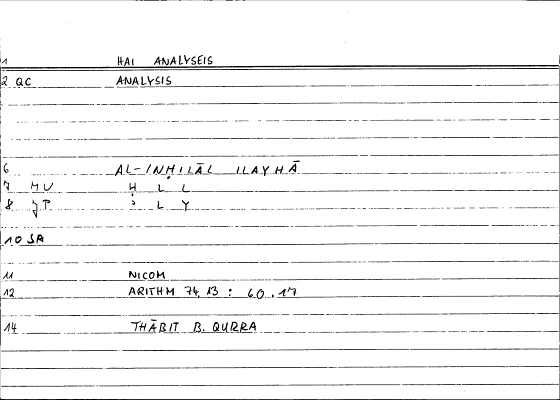 1 HAI ANALYSEIS
2 QC ANALYSIS
6 AL-INḤILĀL ILAYHĀ
7 MU Ḥ L L
8 JP : L Y
10 SA
11 NICOM
12 ARITHM 74,13 : 60.17
14 THĀBIT B. QURRA